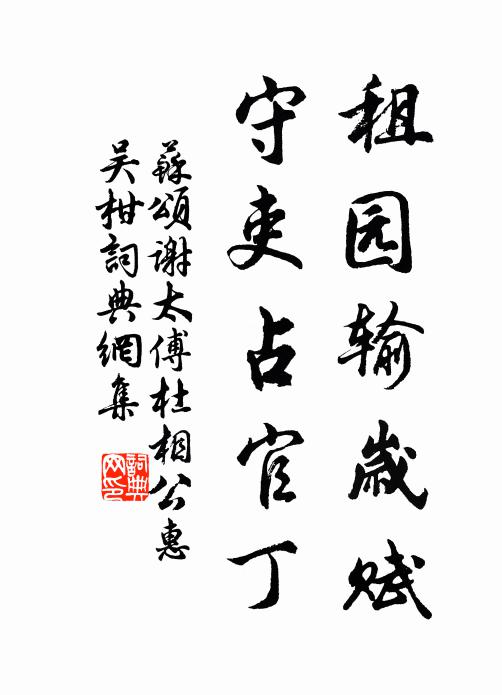 租园输歳赋
守吏占官丁
蘇頌謝太傅杜相公惠
吴柑詞典網集
詞典
网印